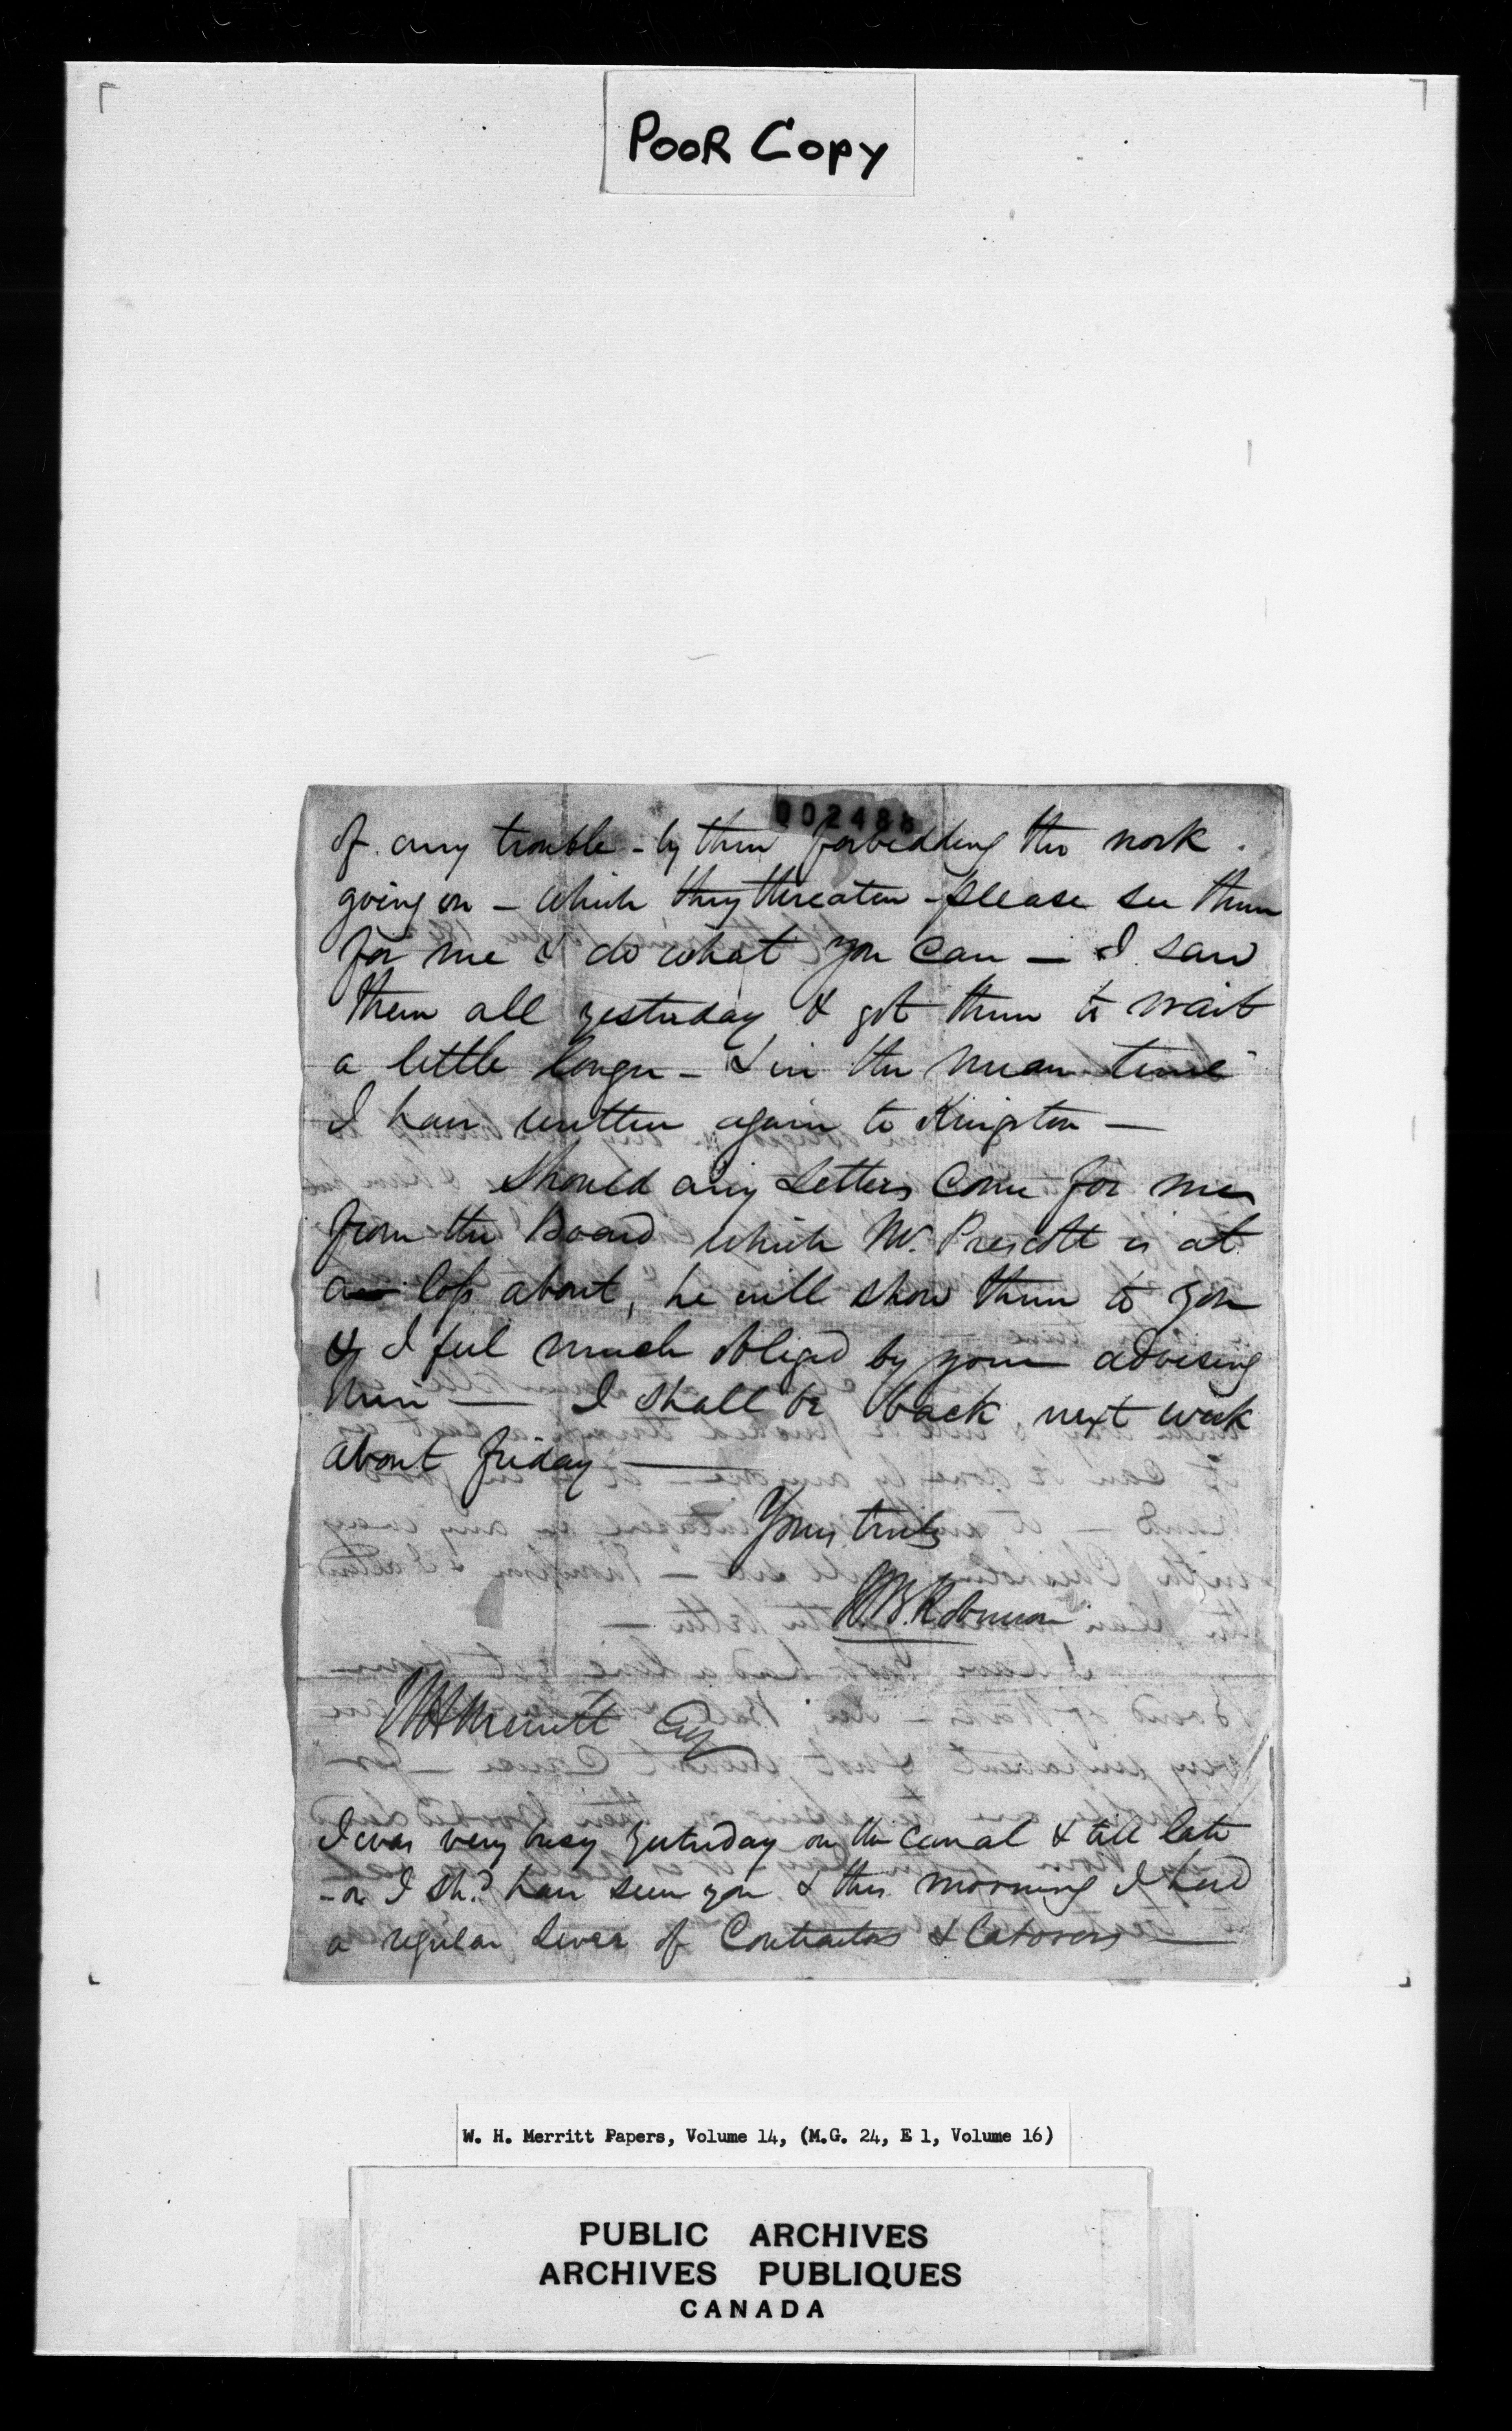 POOR COPY
002486
of any trouble - by them forbidding the work
going on - which they threaten - please see them
for me & do what you can — I saw
them all yesterday & got them to wait
a little longer - & in the mean time
I have written again to Kingston —
Should any Letters come for me
from the Board which Mr. Prescott is at
a loss about, he will show them to you
& I feel much obliged by your advising
him — I shall be back next week
about friday —
Yours truly
W.B. Robinson
W H Merritt Esq
I was very busy yesterday on the canal & till late
- or I shd. have seen you & this morning I had
a regular Levee of Contractors & Laborers —
W. H. Merritt Papers, Volume 14, (M.G. 24, E 1, Volume 16)
PUBLIC ARCHIVES
ARCHIVES PUBLIQUES
CANADA